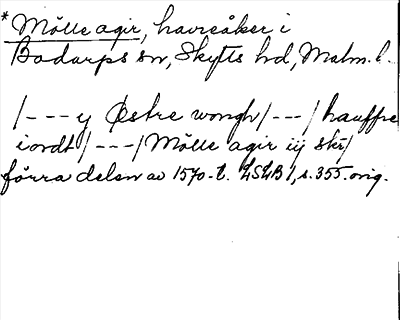 *Mölle agir, havreåker i
Bodarps sn, Skytts hd, Malm. l.
/---y Østre wongh/---/ hauffre
iordt/---/Mölle agir iij skr/
förra delen av 1570-t. LSLB 1, s. 355. orig.